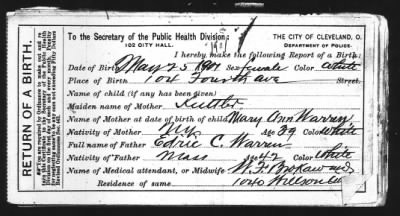 RETURN OF A BIRTH.
To the Secretary of the Public Health Division:
102 CITY HALL.
THE CITY OF CLEVELAND, O.
DEPARTMENT OF POLICE.
I hereby make the following Report of a Birth:
Date of Birth May 25 1901 Sex Female Color White
Place of Birth 104 Fourth ave Street.
Name of child (if any has been given)
Maiden name of Mother
Name of Mother at date of birth of child Mary Ann Warren
Nativity of Mother NY Age 39 Color White
Full name of Father Edric C. Warren
Nativity of Father Mass Age 42 Color White
Name of Medical attendant, or Midwife W. F. Brokaw MD
Residence of same 1040 Willson